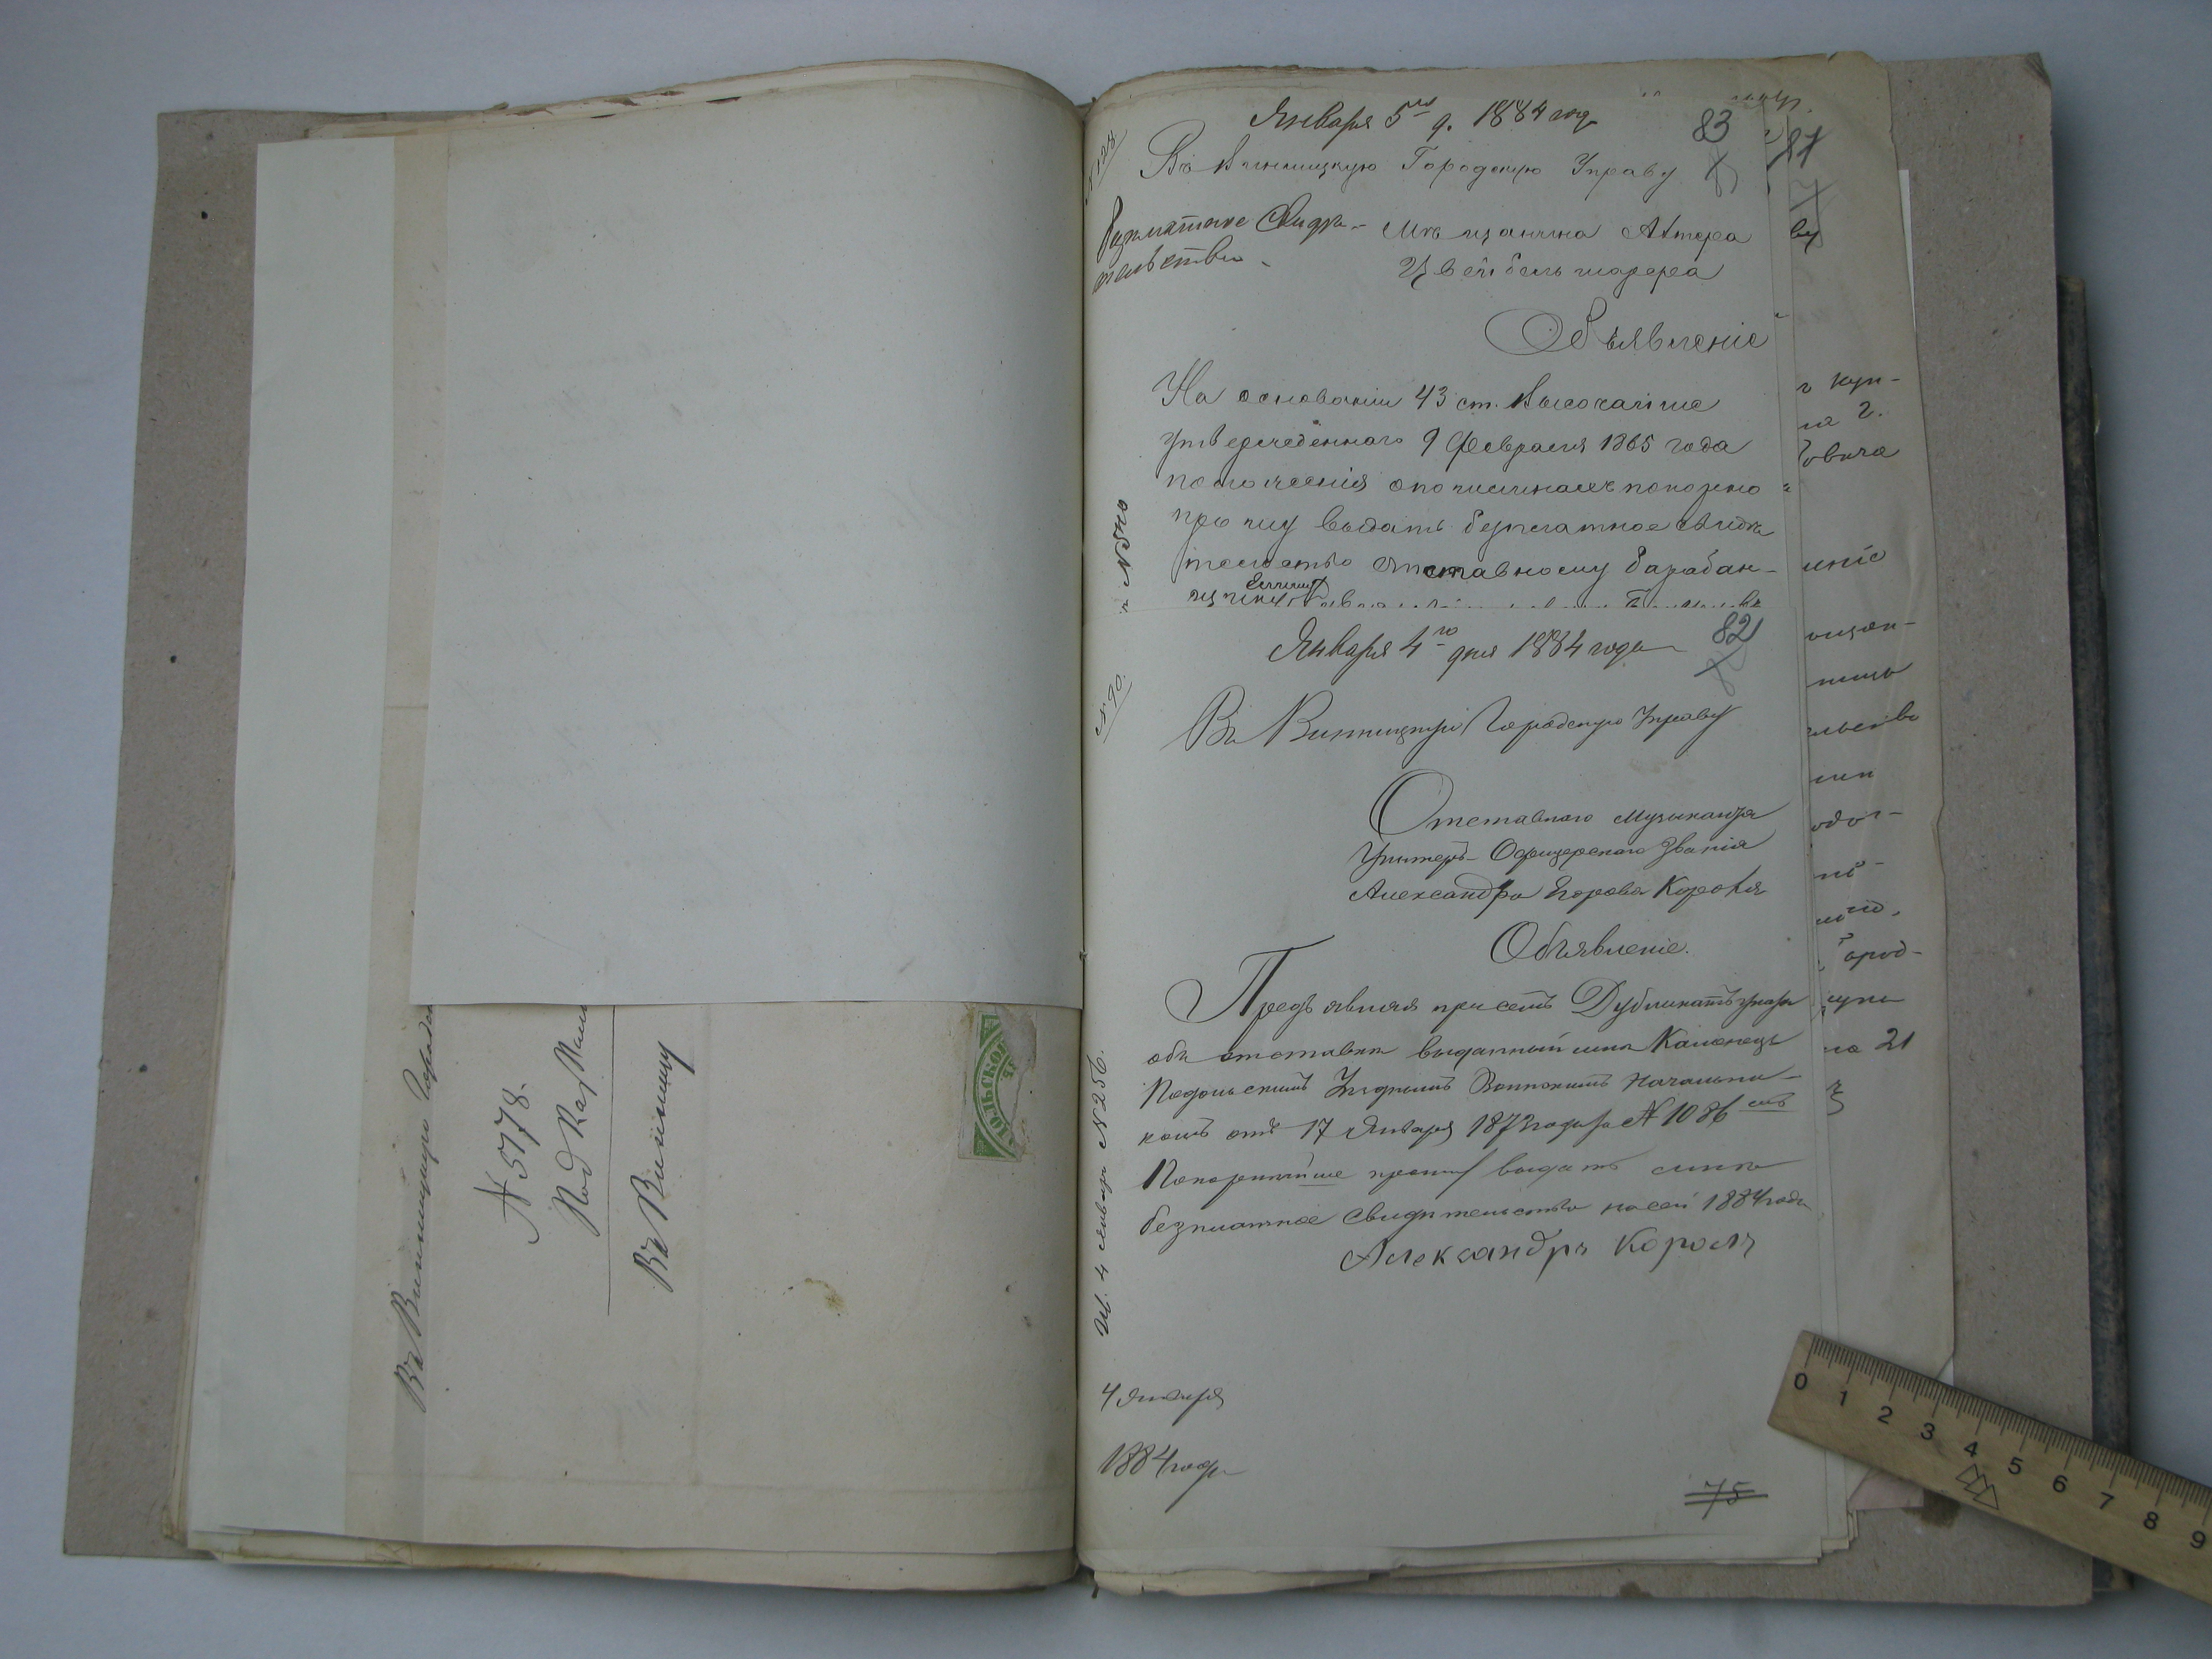 Въ Винницкую Городск
№ 5178.
Под Каз Пал
Въ Винницу
ПОДОЛЬСКОЙ
Января 5го д. 1884 год
83
81
№ 128
Въ Винницкую Городскую Управу
Безплатное Свидѣ-
тельство
Мѣщанина
Цвейбельмарера
Объявленіе
На основаніи 43 ст. Высочайше
утвержденнаго 9 Февраля 1865 года
положенія о пошлинахъ покорно
прошу выдать безплатное свидѣ
тельство отставному барабан-
щику
№ 90.
Января 4го дня 1884 года
82
Въ Винницкую Городскую Управу
Отставного Музыканта
Унтеръ-Офицерскаго званія
Александра Егорова Короля
Объявленіе.
Предъявляя при семъ Дубликатъ указа
объ отставкѣ выданный мнѣ Каменецъ
Подольскимъ Уѣзднымъ Воинскимъ Начальни-
комъ отъ 17 Января 1873 года за № 1086 симъ
Покорнѣйше прошу выдать мнѣ
безплатное свидѣтельство на сей 1884 годъ
Александръ Король
№ 256.
4 января
1884 года
75
г Куп-
на 2.
овича
ніе
ощан-
льство
одол-
ород-
на 21
0 1 2 3 4 5 6 7 8 9